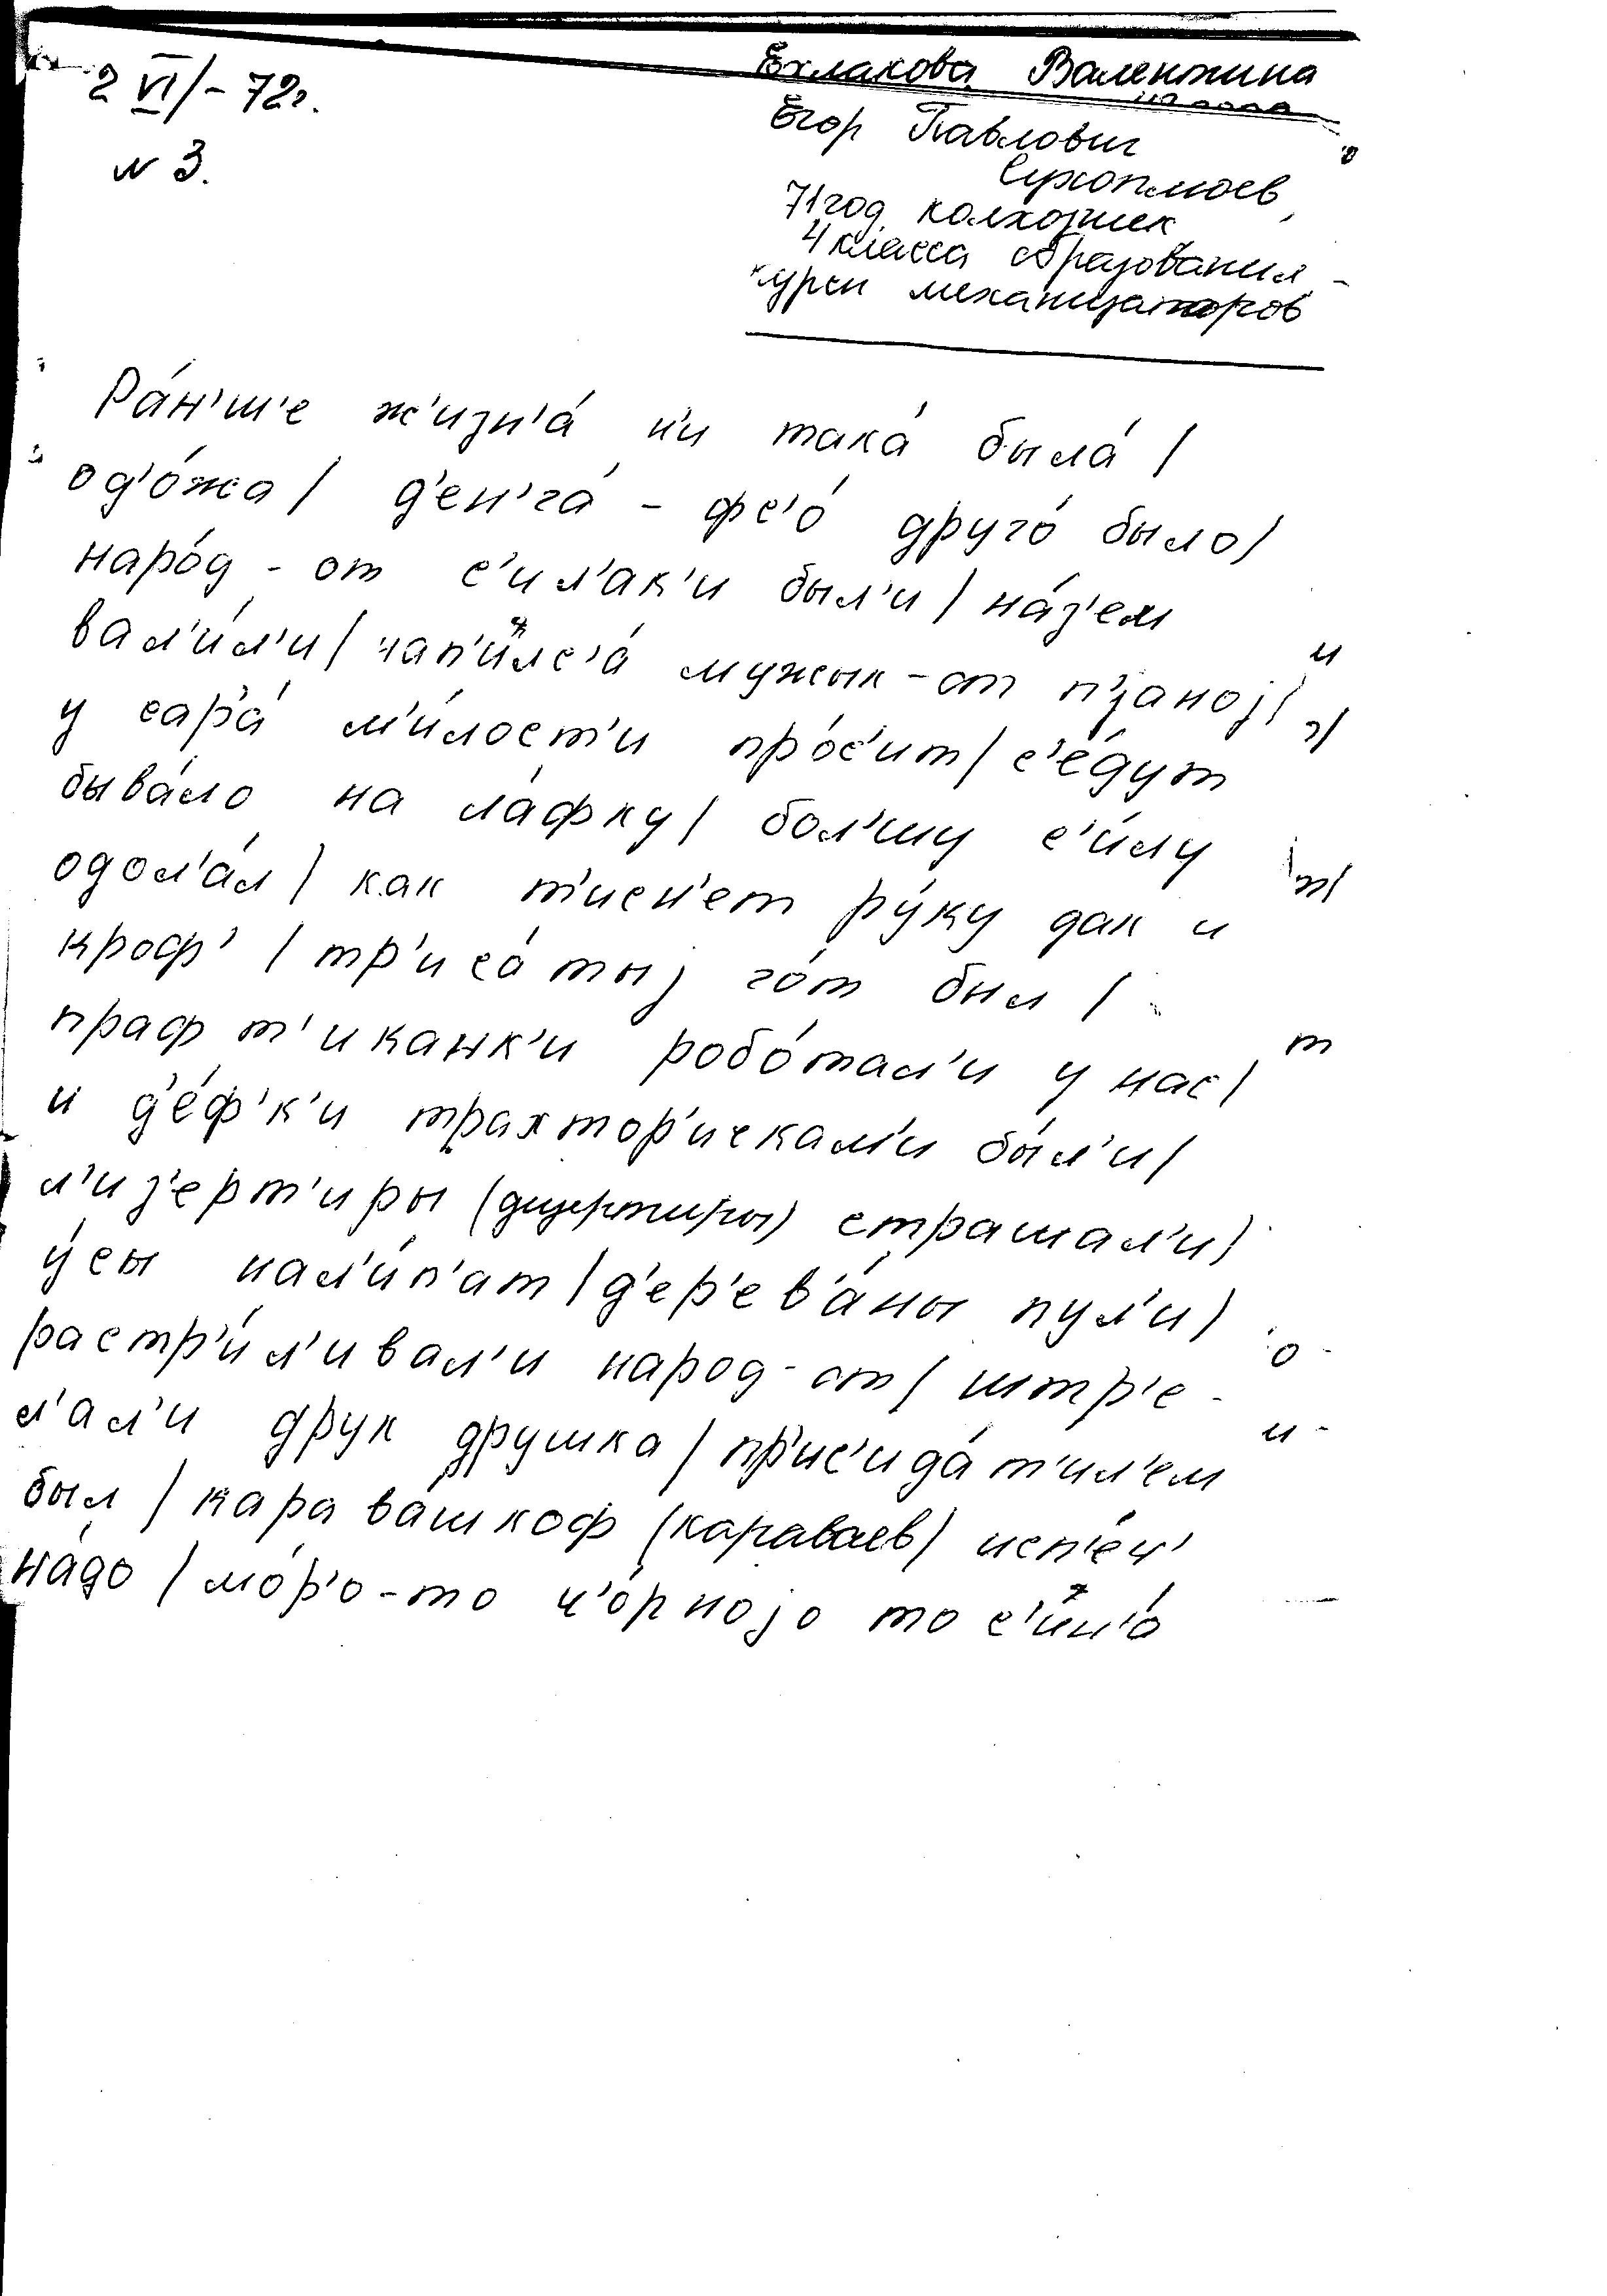 2 VI/-72г.
N 3.
Ехлакова Валентина
Егор Павлович
71 год, колхозник
4 класса образования
курсы механизаторов
Ра́н'ш'е ж'изн'а́ н'и така́ была́ /
од'о́жа / д'ен'га́ - фс'о́ друго́ было /
наро́д - от с'ил'ак'и был'и / на́з'ем
вал'и́л'и / нап'и́лс'а́ мужык - от п'janoj /
у сар'а́ м'и́лост'и про́с'ит / с'е́дут
быва́ло на ла́фку / бол'шу с'и́лу
одол'а́л / как т'исн'ет ру́ку дак и
кроф' / тр'иса́тыj го́т был /
прафт'иканк'и робо́тал'и у нас /
и д'е́ф'к'и трахтор'искам'и бы́л'и /
л'из'ерт'иры (дезертиры) страшал'и /
у́сы нал'и́п'ат / д'ер'ев'а́ны пул'и /
растр'и́л'ивал'и народ - от / штр'е -
л'ал'и друк дружка / пр'ис'ида́т'ил'ем
был / карава́шкоф (караваев) исп'е́ч'
на́до / мо́р'о - то ч'о́рноjо то с'и́н'о